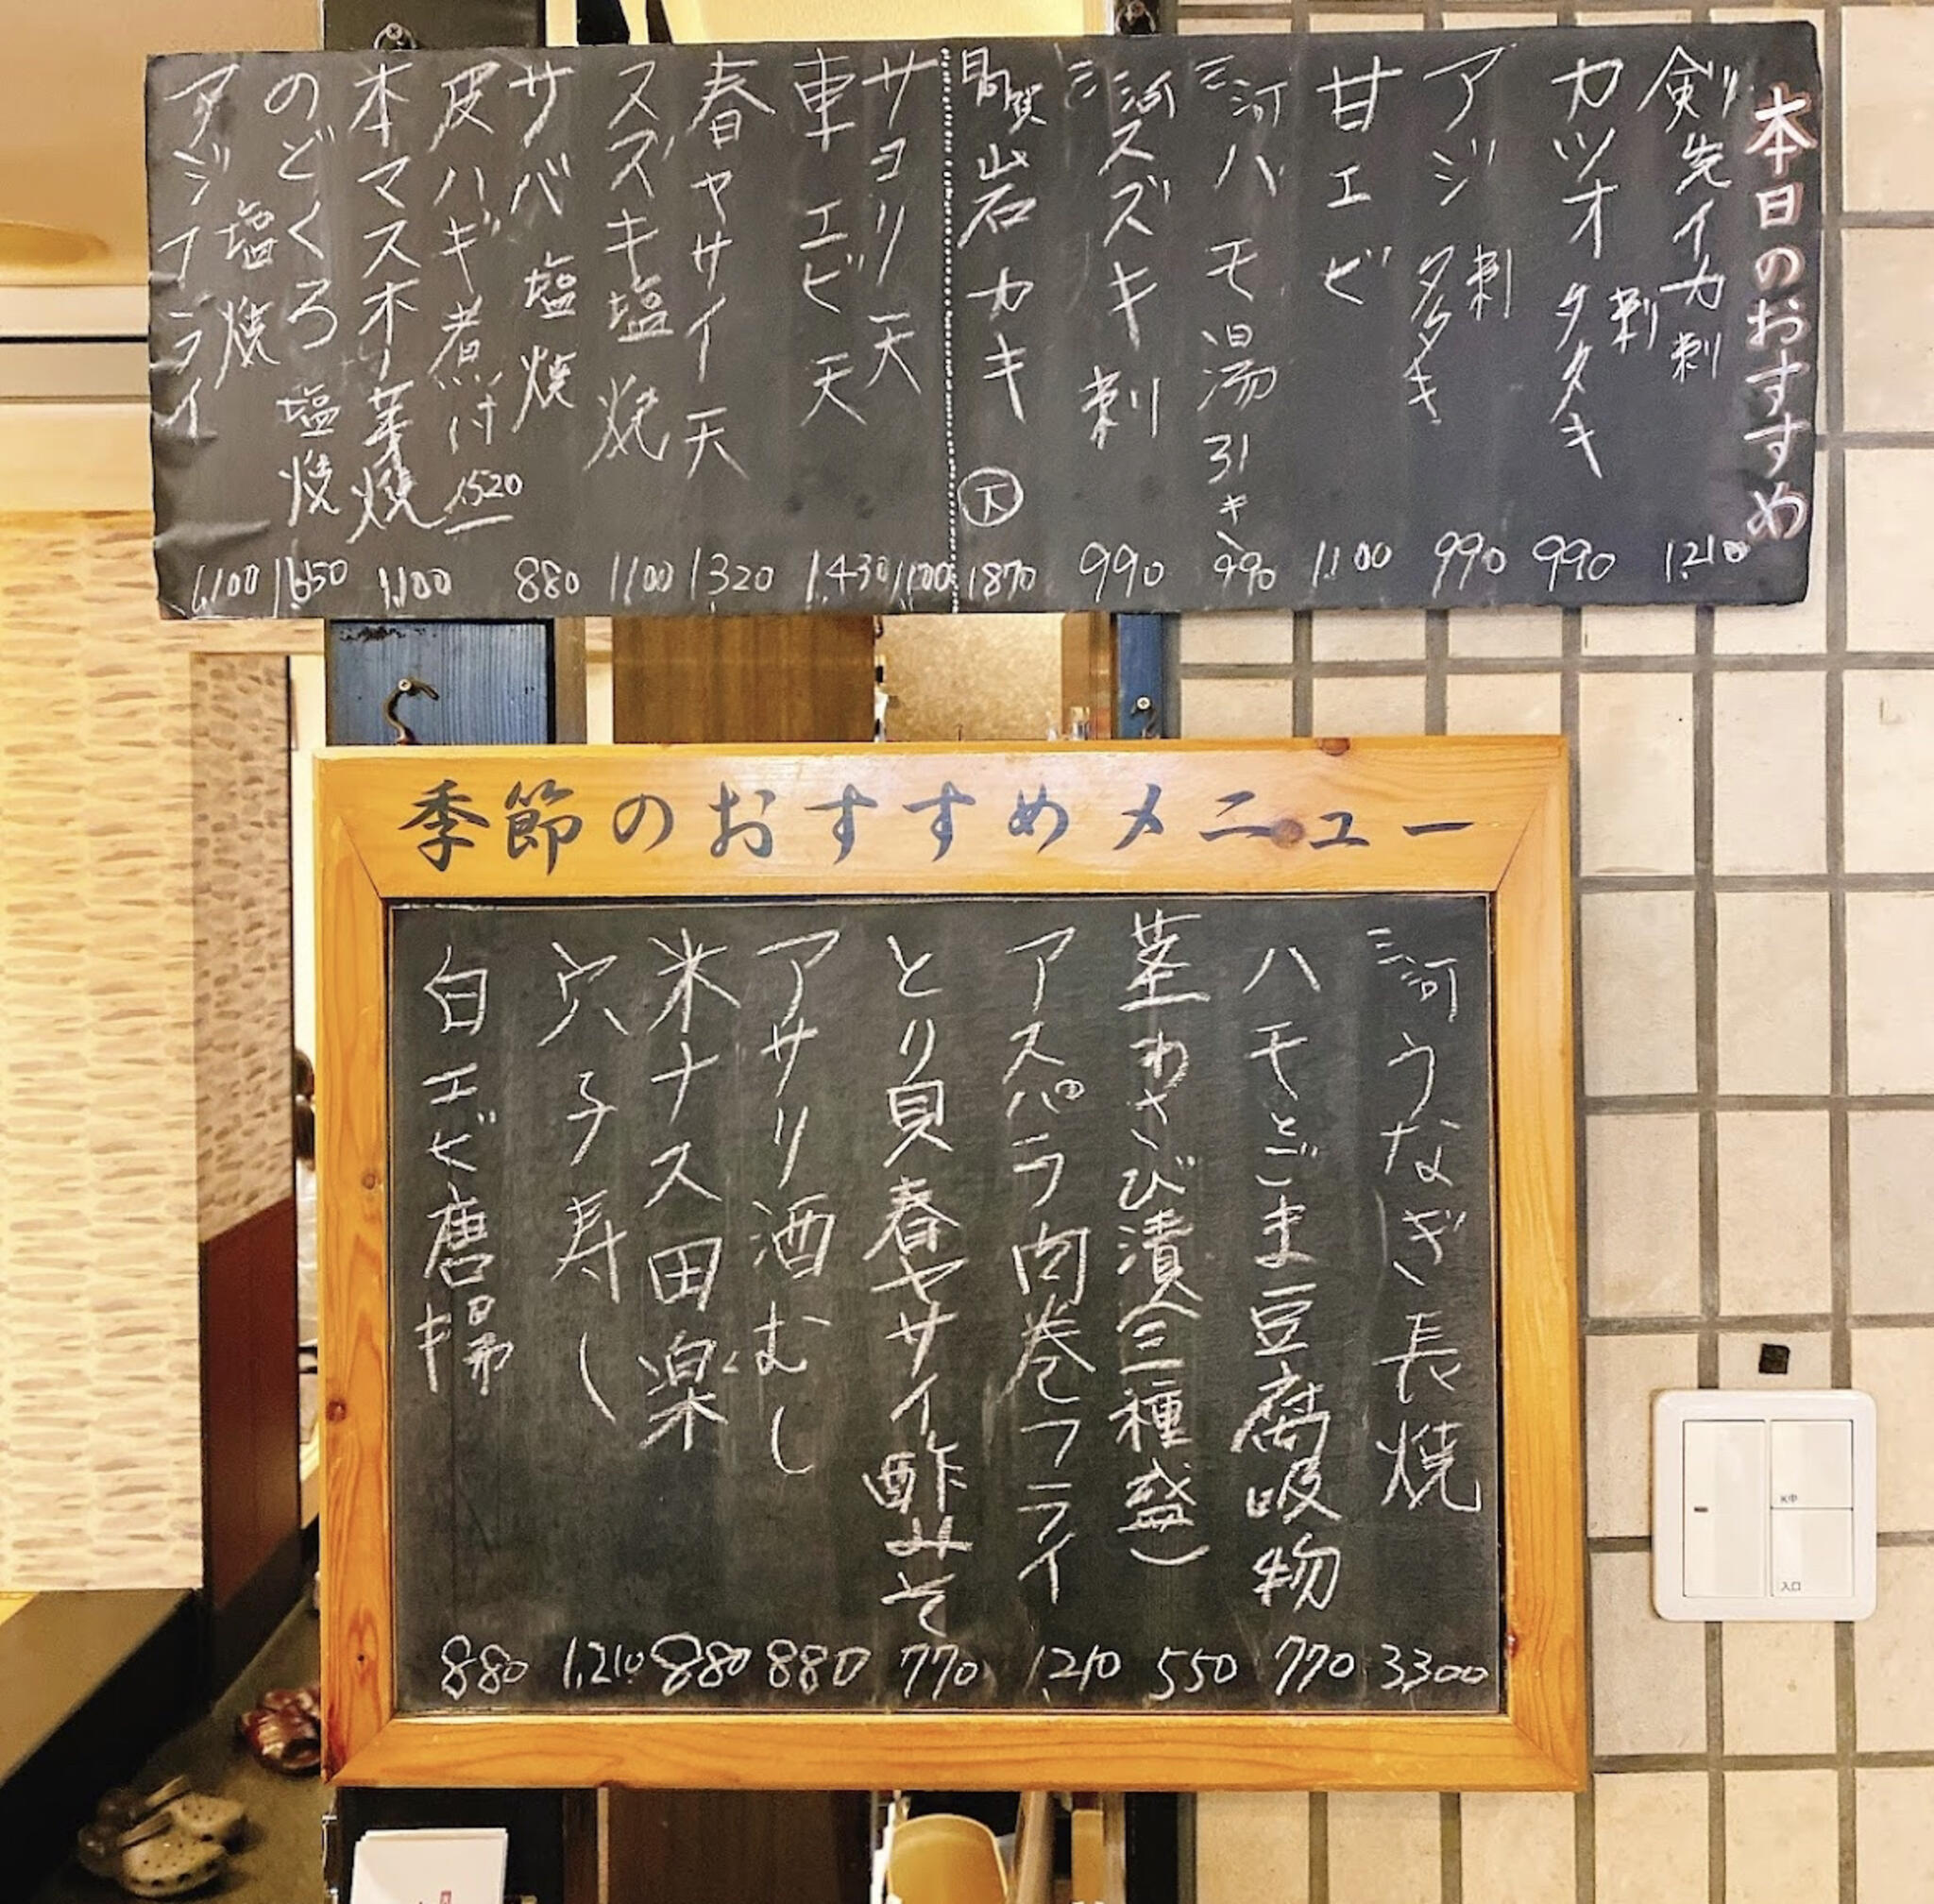 本日のおすすめ
剣先イカ刺 1,210
カツオ 刺 タタキ 990
アジ 刺 タタキ 990
甘エビ 1,100
三河ハモ湯引き 990
三河スズキ刺 990
岩カキ 下 1,870
サヨリ天 1,100
車エビ天 1,430
春ヤサイ天 1,320
スズキ塩焼 1,100
サバ塩焼 880
皮ハギ煮付 1,520
本マスホー葉焼 1,100
のどくろ塩焼 1,650
塩焼
アジフライ 1,100
季節のおすすめメニュー
三河うなぎ長焼 3300
ハモとごま豆腐吸物 770
茎わさび漬(三種盛) 550
アスパラ肉巻フライ 1,210
とり貝春ヤサイ酢みそ 770
アサリ酒むし 880
米ナス田楽 880
穴子寿し 1,210
白エビ唐揚 880
入口